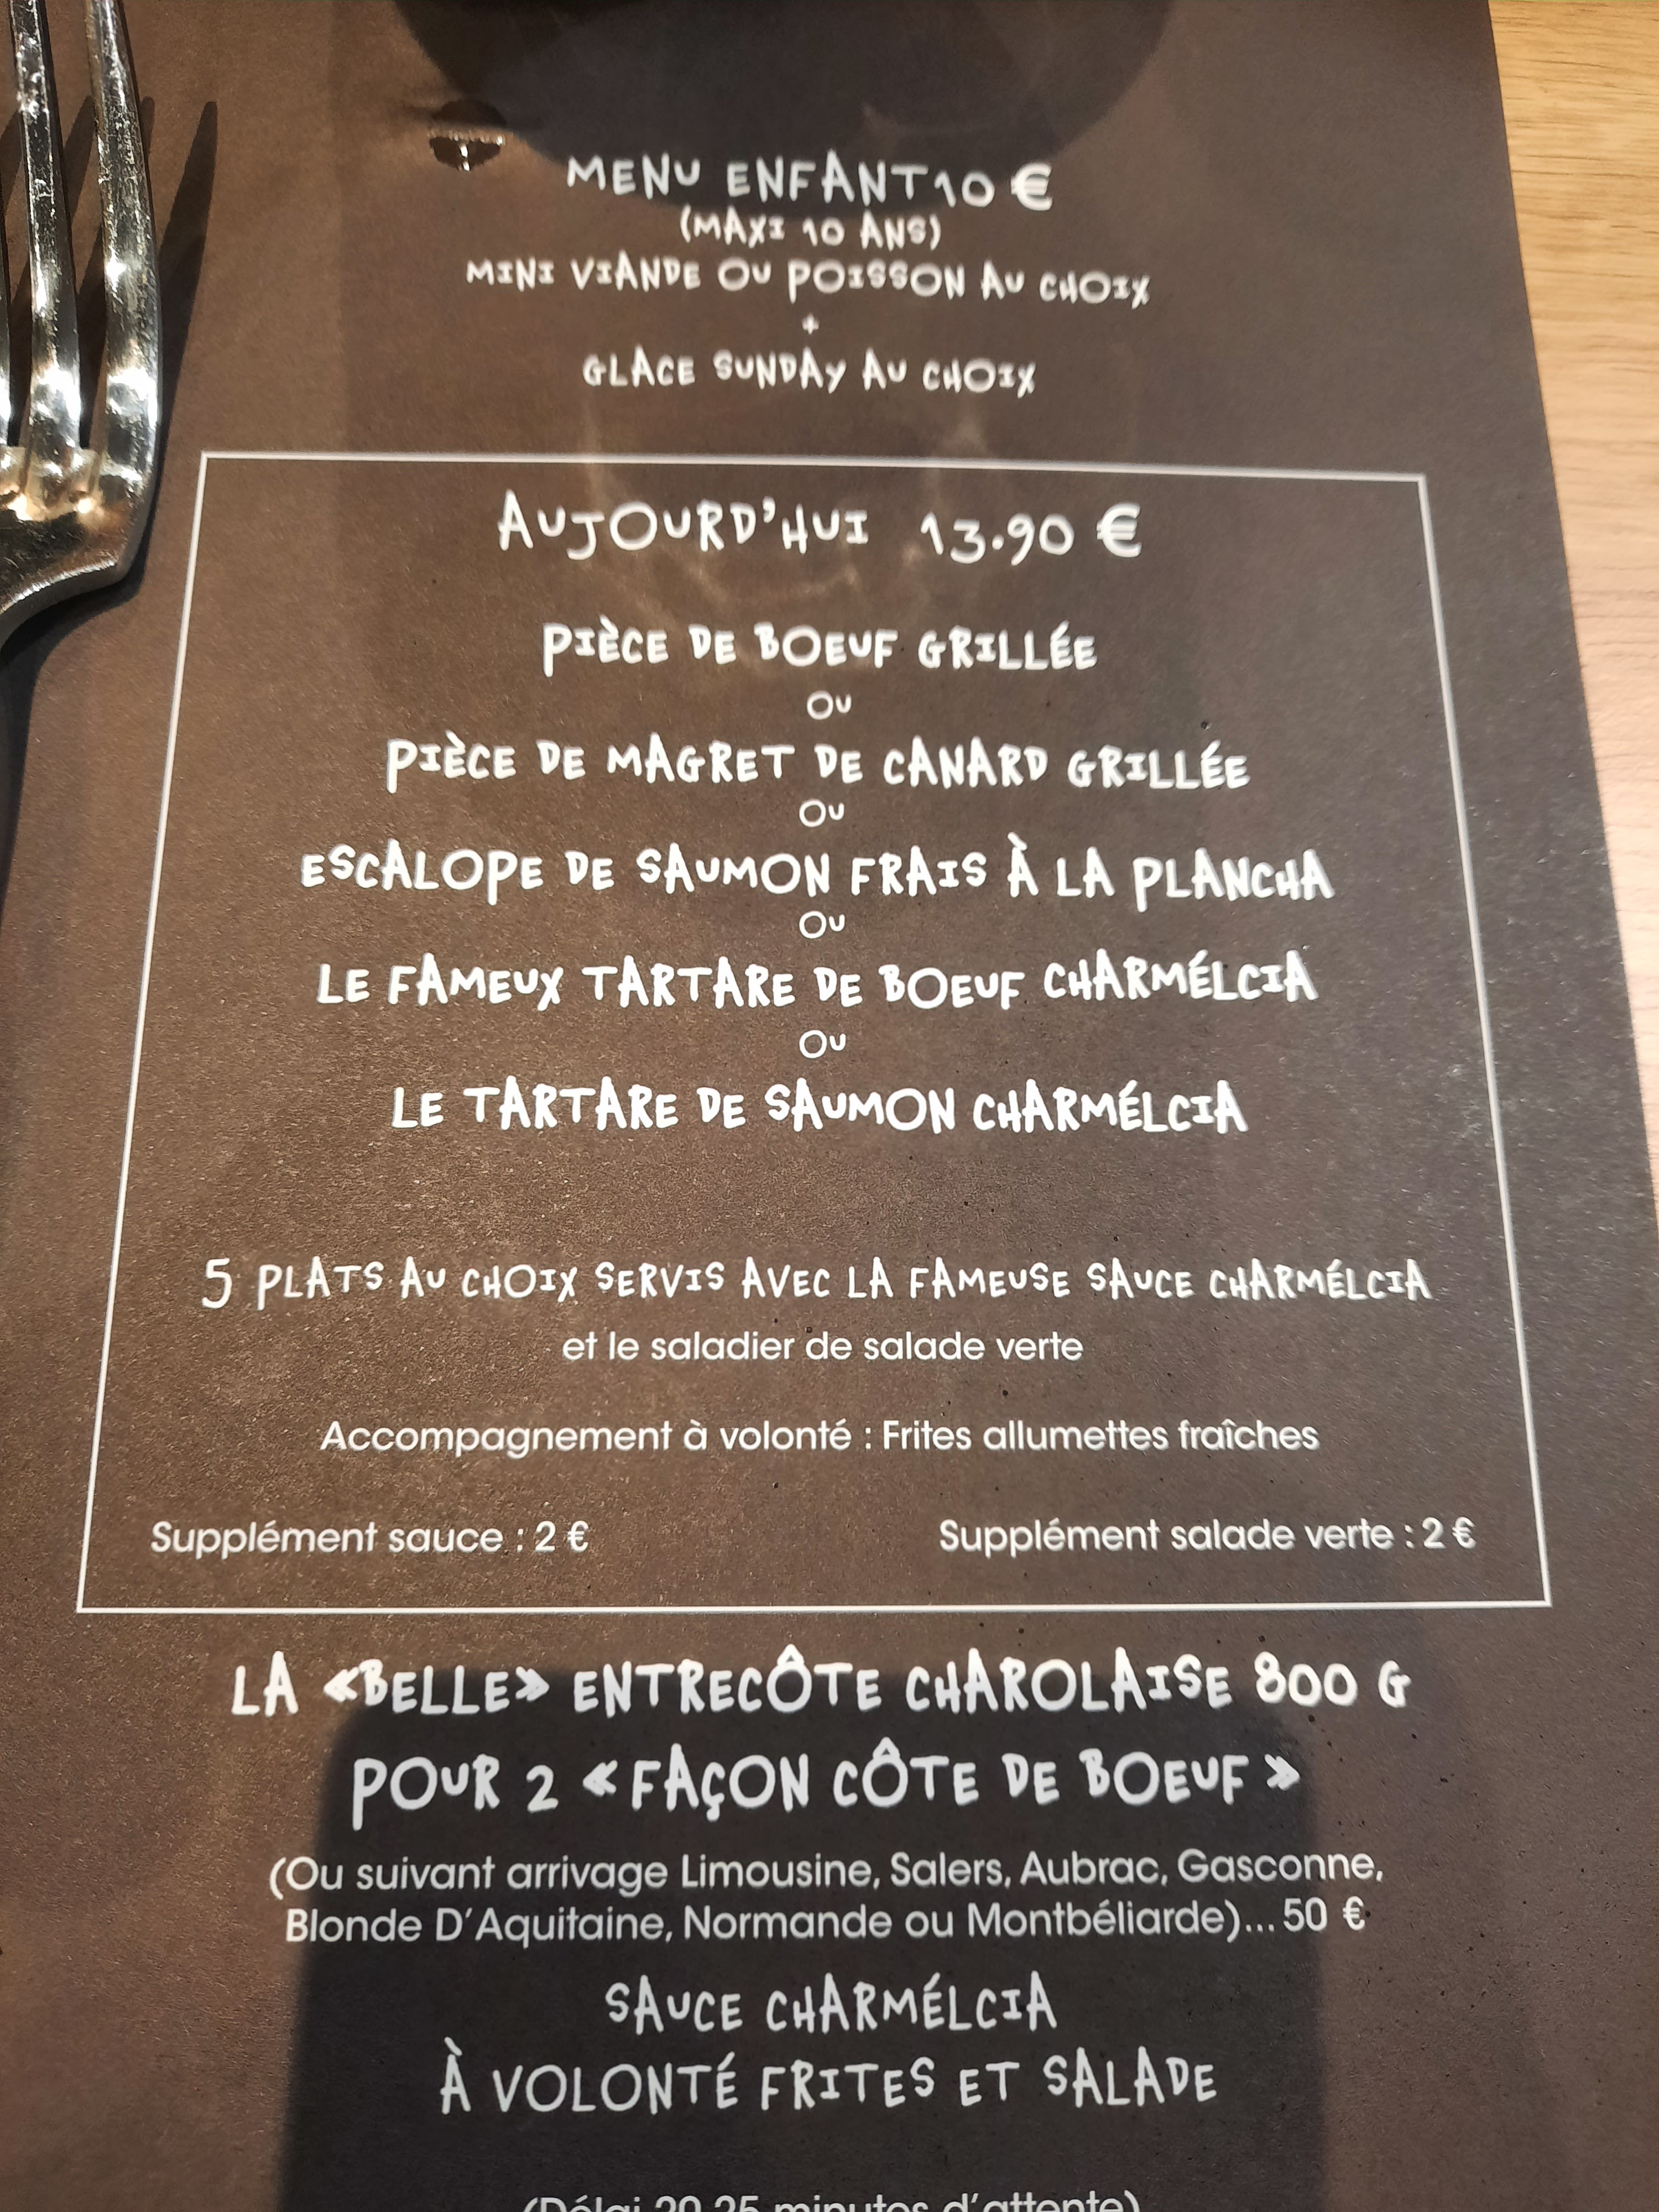 MENU ENFANT 10 €
(MAXI 10 ANS)
MINI VIANDE OU POISSON AU CHOIX
+
GLACE SUNDAY AU CHOIX
AUJOURD'HUI 13.90 €
PIÈCE DE BOEUF GRILLÉE
OU
PIÈCE DE MAGRET DE CANARD GRILLÉE
OU
ESCALOPE DE SAUMON FRAIS À LA PLANCHA
OU
LE FAMEUX TARTARE DE BOEUF CHARMÉLCIA
OU
LE TARTARE DE SAUMON CHARMÉLCIA
5 PLATS AU CHOIX SERVIS AVEC LA FAMEUSE SAUCE CHARMÉLCIA
et le saladier de salade verte
Accompagnement à volonté : Frites allumettes fraîches
Supplément sauce : 2 € Supplément salade verte : 2 €
LA «BELLE» ENTRECÔTE CHAROLAISE 800 G
POUR 2 « FAÇON CÔTE DE BOEUF »
(Ou suivant arrivage Limousine, Salers, Aubrac, Gasconne,
Blonde D'Aquitaine, Normande ou Montbéliarde)... 50 €
SAUCE CHARMÉLCIA
À VOLONTÉ FRITES ET SALADE
(Délai 20 25 minutes d'attente)